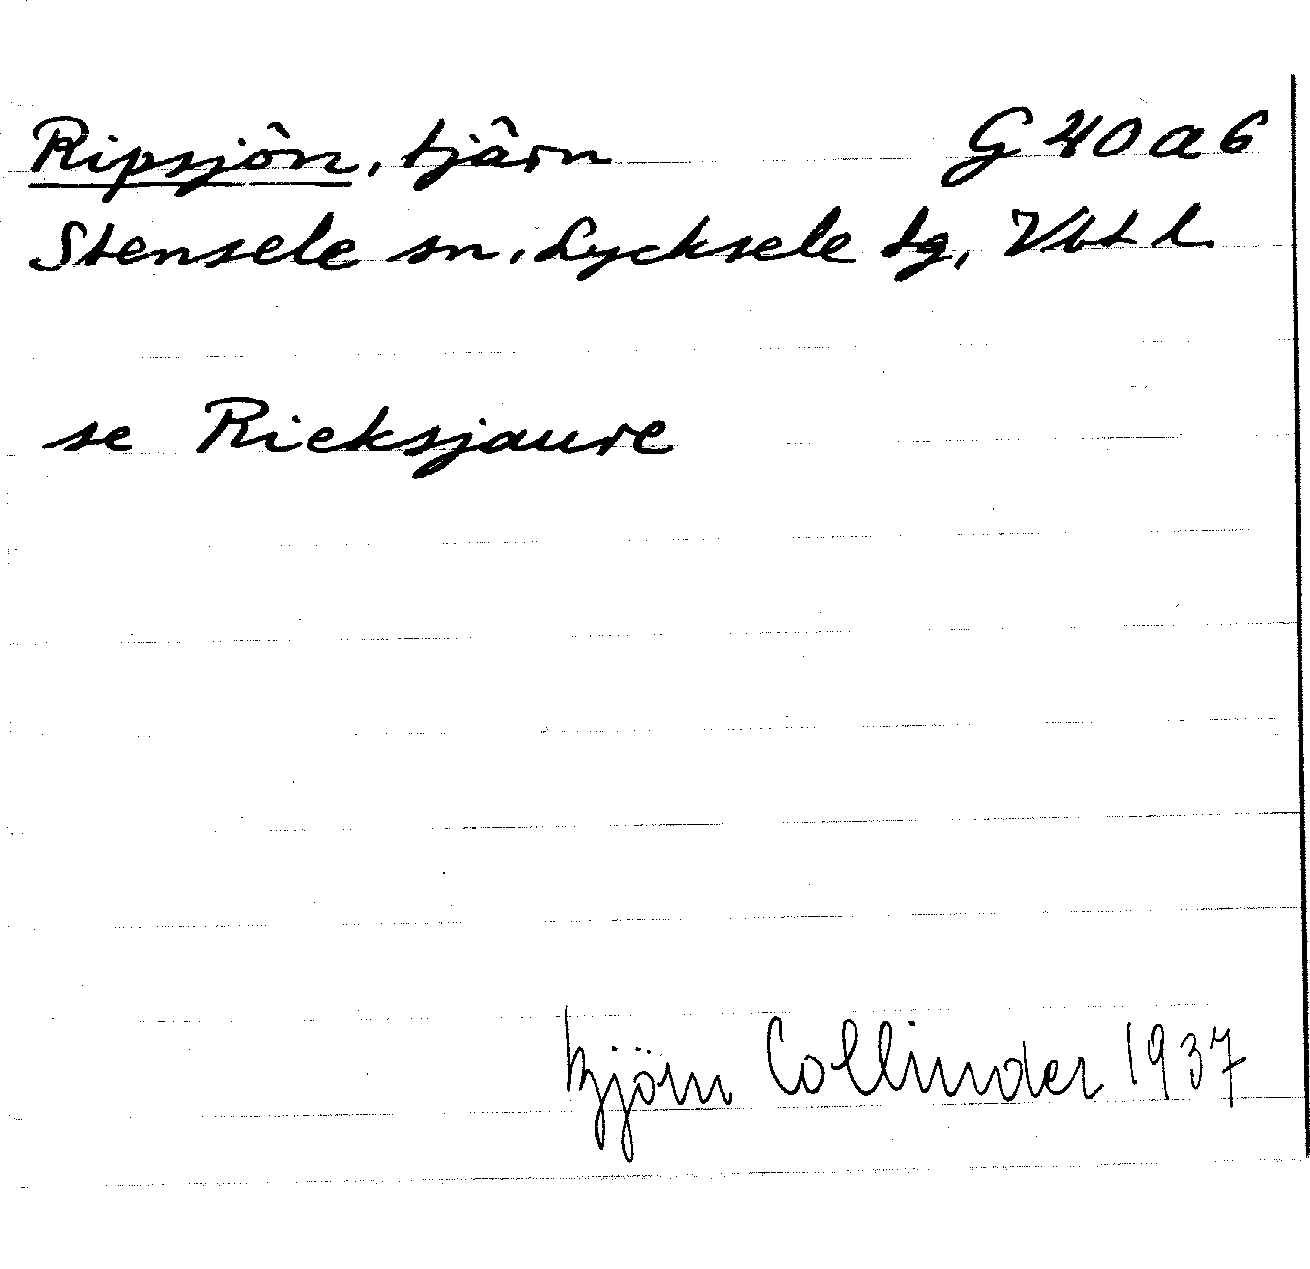 Ripsjön, tjärn G 40 a 6
Stensele sn, Lycksele tg, Vbt l.
se Rieksjaure
Björn Collinder 1937